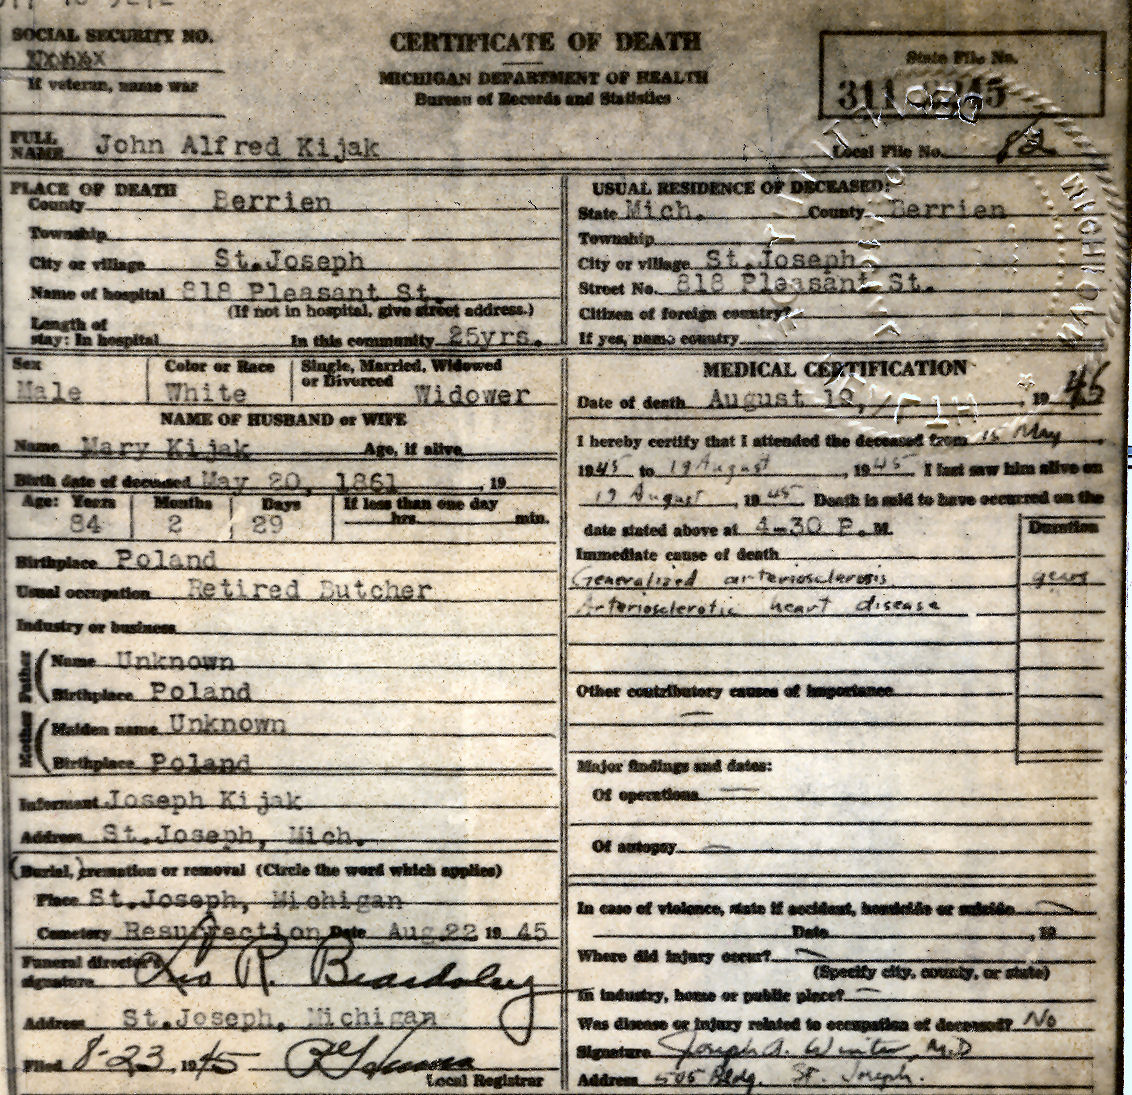 SOCIAL SECURITY NO.
If veteran, name war
CERTIFICATE OF DEATH
MICHIGAN DEPARTMENT OF HEALTH
Bureau of Records and Statistics
State File No.
311
Local File No. 82
FULL NAME John Alfred Kijak
PLACE OF DEATH
County Berrien
Township
City or village St.Joseph
Name of hospital 818 Pleasant St.
(If not in hospital, give street address.)
Length of stay: In hospital In this community 25yrs.
USUAL RESIDENCE OF DECEASED:
State Mich. County Berrien
Township
City or village St.Joseph
Street No. 818 Pleasant St.
Citizen of foreign country?
If yes, name country
Sex Male
Color or Race White
Single, Married, Widowed or Divorced Widower
NAME OF HUSBAND or WIFE
Name Mary Kijak Age, if alive
Birth date of deceased May 20, 1861, 19
Age: Years Months Days If less than one day
84 2 29 hrs. min.
Birthplace Poland
Usual occupation Retired Butcher
Industry or business
Father
Name Unknown
Birthplace Poland
Mother
Maiden name Unknown
Birthplace Poland
Informant Joseph Kijak
Address St.Joseph, Mich.
(Burial,) cremation or removal (Circle the word which applies)
Place St.Joseph, Michigan
Cemetery Resurrection Date Aug.22 19 45
Funeral director's signature R. Beardsley
Address St.Joseph, Michigan
Filed 8-23, 1945
Local Registrar
MEDICAL CERTIFICATION
Date of death August 19, 1945
I hereby certify that I attended the deceased from 15 May
1945 to 19 August, 1945 I last saw him alive on
19 August, 1945 Death is said to have occurred on the
date stated above at 4-30 P.M. Duration
Immediate cause of death
Generalized arteriosclerosis years
Arteriosclerotic heart disease
Other contributory causes of importance
Major findings and dates:
Of operations
Of autopsy
In case of violence, state if accident, homicide or suicide
Date , 19
Where did injury occur?
(Specify city, county, or state)
In industry, home or public place?
Was disease or injury related to occupation of deceased? No
Signature Joseph A. Winter, M.D
Address 505 Bldg. St. Joseph.